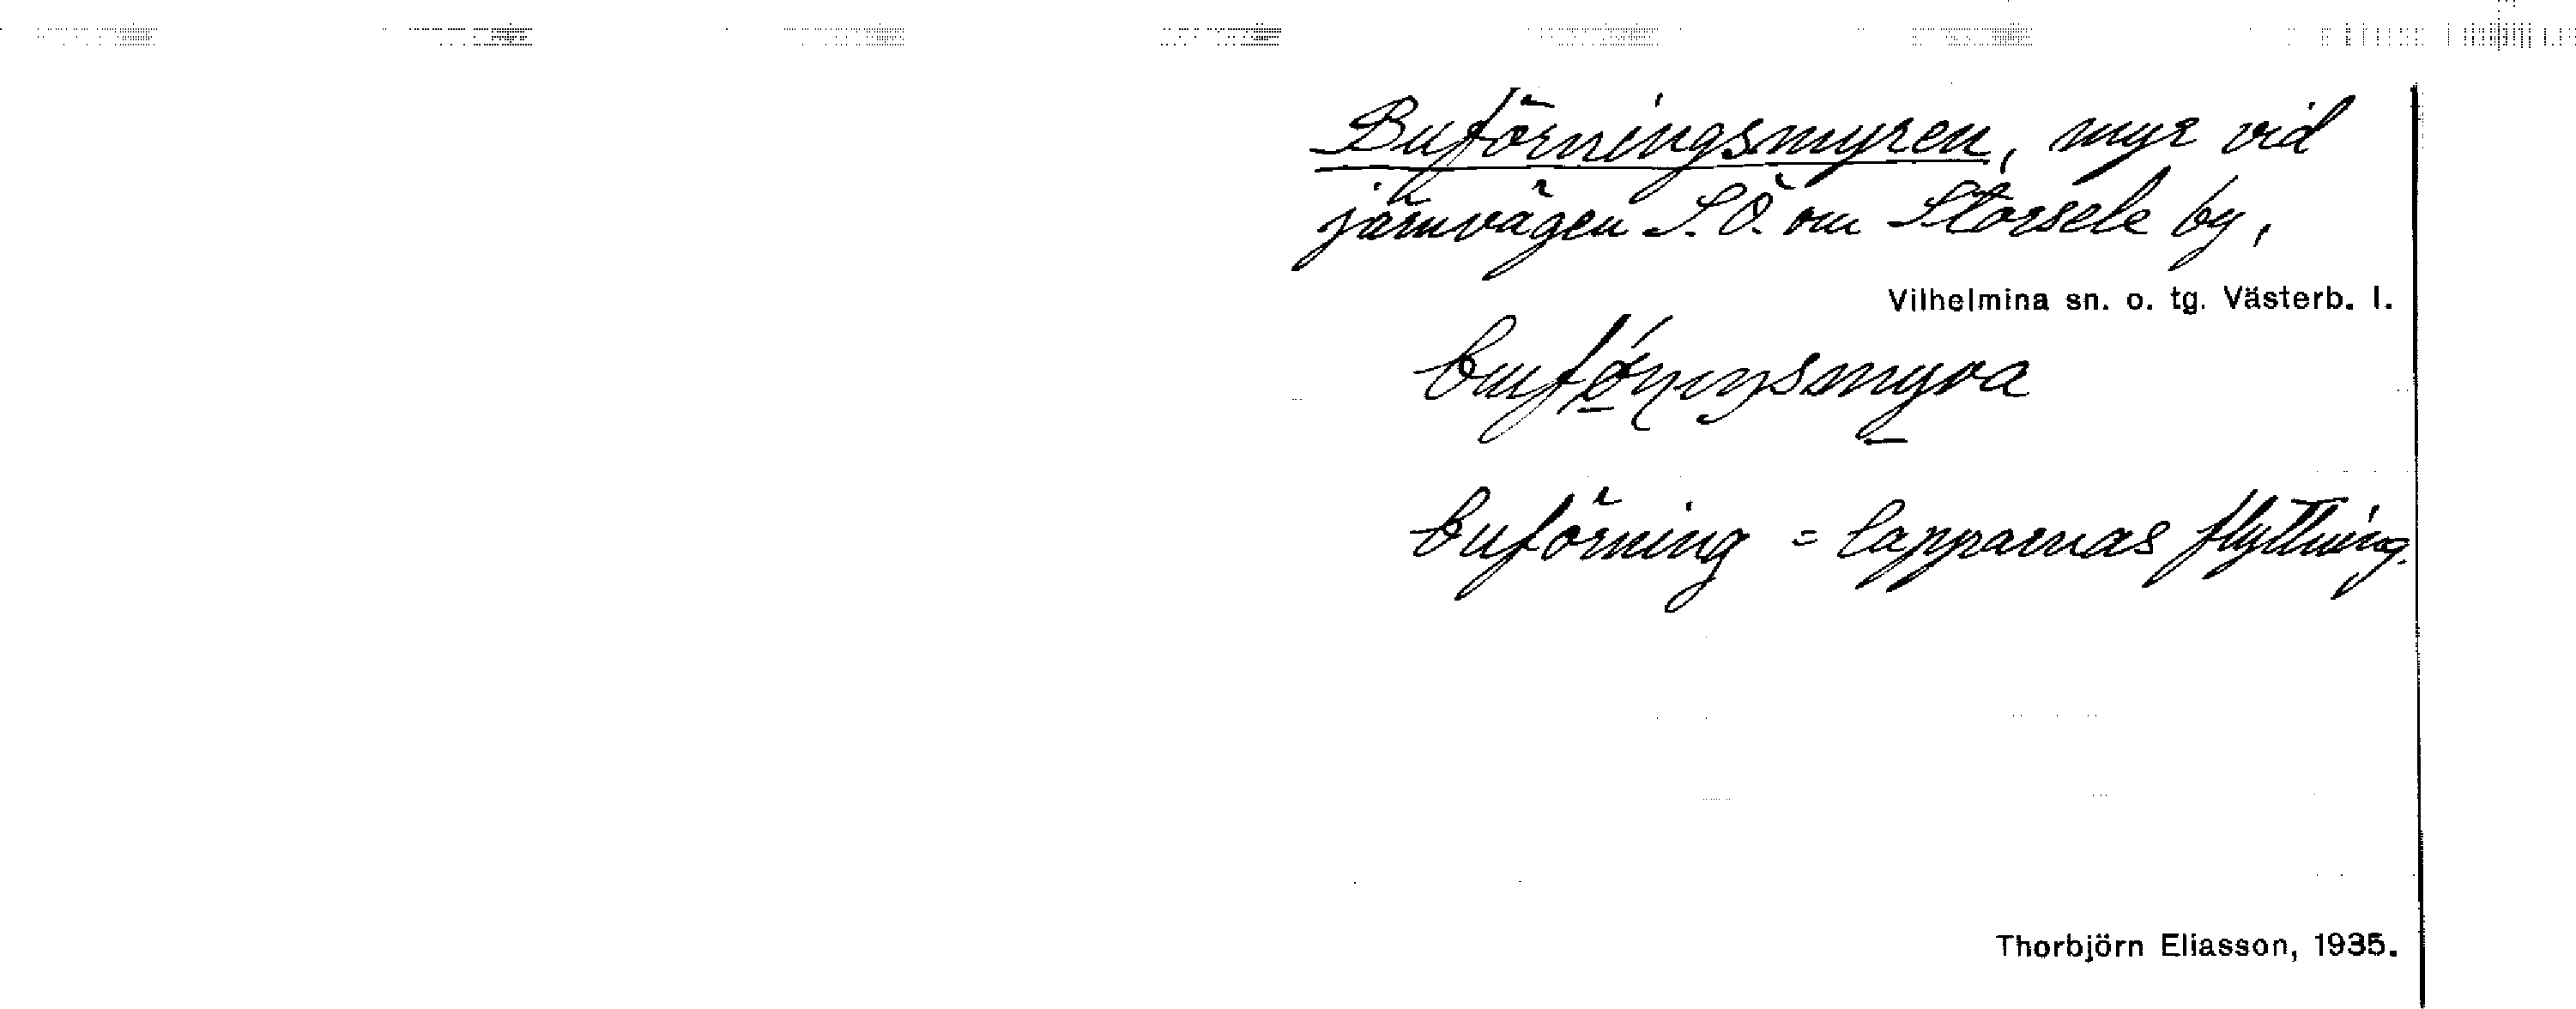 Buförningsmyren, myr vid
järnvägen S.Ö. om Storsele by,
Vilhelmina sn. o. tg. Västerb. l.
buförning = lapparnas flyttning.
Thorbjörn Eliasson, 1935.